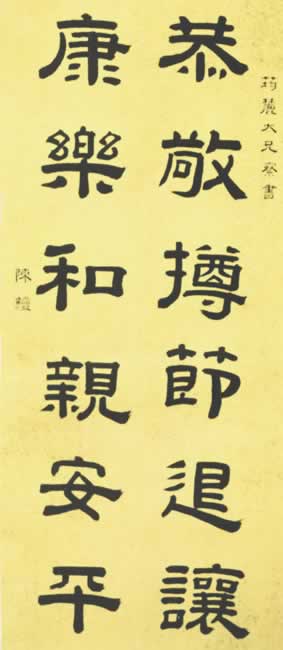 筠麓大兄察書
恭敬撙節退讓
康樂和親安平
陳